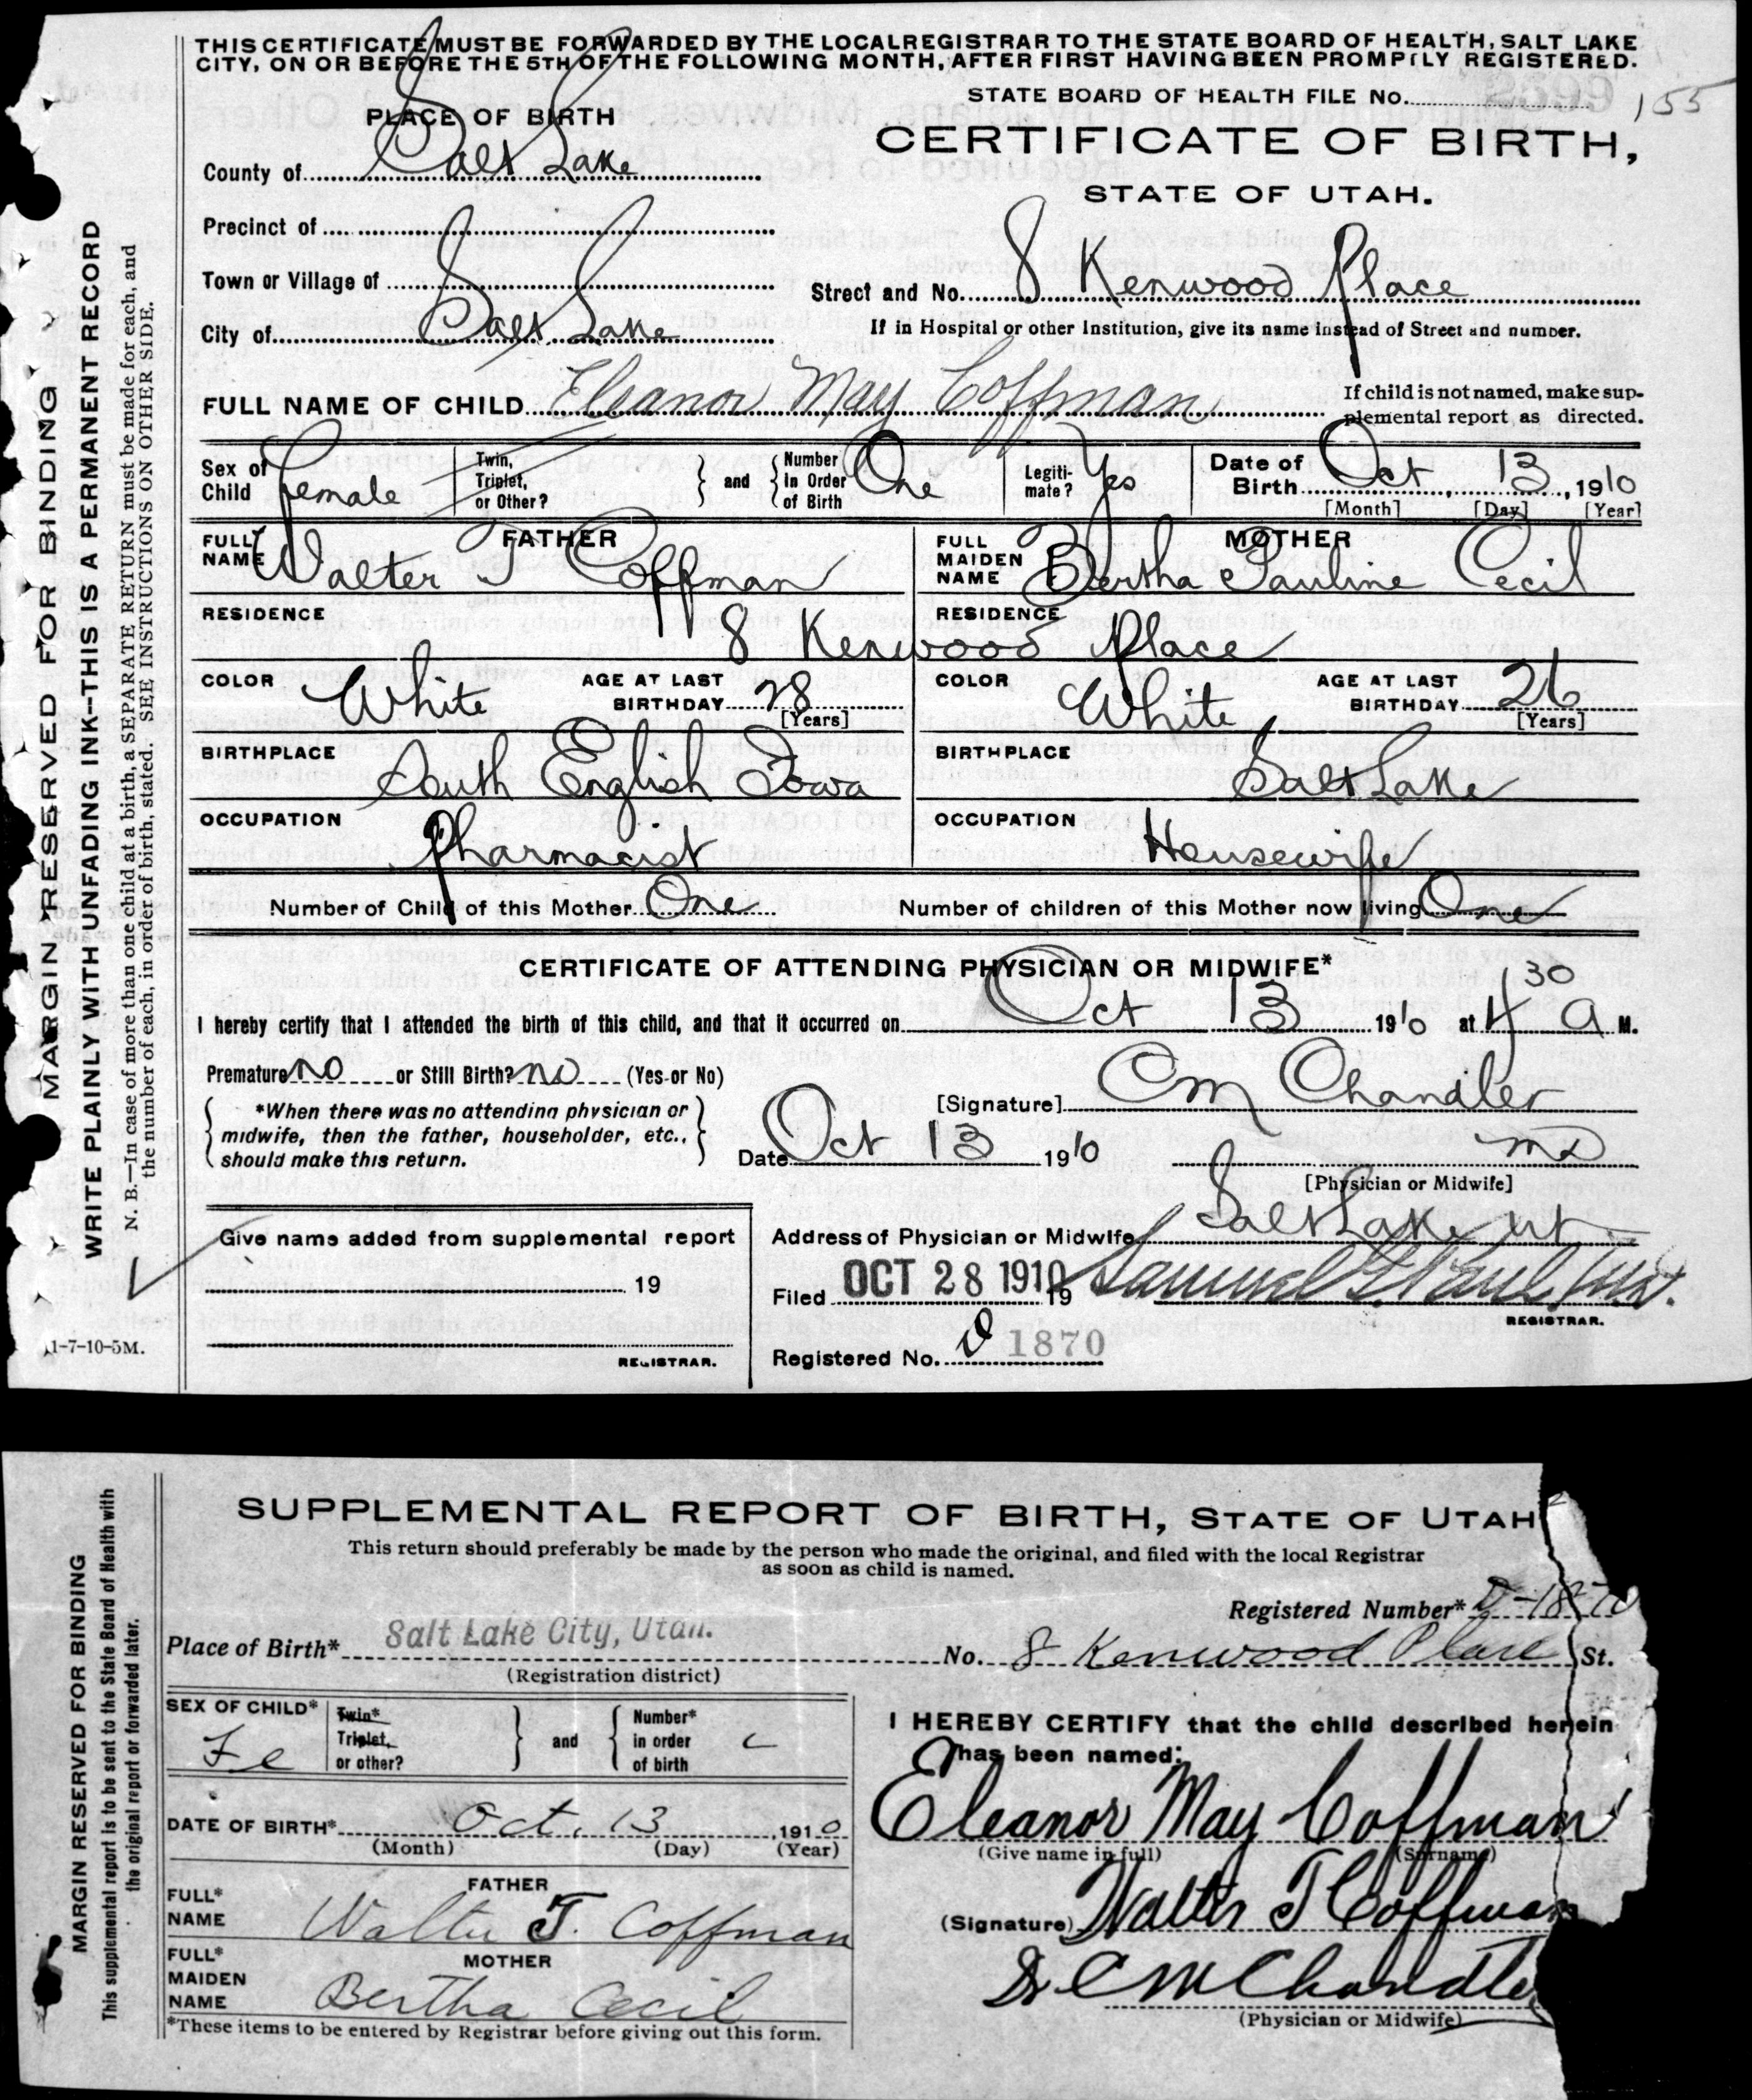 THIS CERTIFICATE MUST BE FORWARDED BY THE LOCAL REGISTRAR TO THE STATE BOARD OF HEALTH, SALT LAKE
CITY, ON OR BEFORE THE 5TH OF THE FOLLOWING MONTH, AFTER FIRST HAVING BEEN PROMPTLY REGISTERED.
STATE BOARD OF HEALTH FILE No. 155
PLACE OF BIRTH
CERTIFICATE OF BIRTH,
STATE OF UTAH.
County of Salt Lake
Precinct of
Town or Village of
Street and No. 8 Kenwood Place
City of Salt Lake
If in Hospital or other Institution, give its name instead of Street and number.
FULL NAME OF CHILD Eleanor May Coffman
If child is not named, make sup-
plemental report as directed.
Sex of Child Female
Twin, Triplet, or Other?
and
Number In Order of Birth One
Legiti-mate? Yes
Date of Birth Oct 13, 1910
[Month] [Day] [Year]
FATHER
FULL NAME Walter J Coffman
MOTHER
FULL MAIDEN NAME Bertha Pauline Cecil
RESIDENCE
RESIDENCE
8 Kenwood Place
COLOR White
AGE AT LAST BIRTHDAY 28
[Years]
COLOR White
AGE AT LAST BIRTHDAY 26
[Years]
BIRTHPLACE South English Iowa
BIRTHPLACE Salt Lake
OCCUPATION Pharmacist
OCCUPATION Housewife
Number of Child of this Mother One
Number of children of this Mother now living One
CERTIFICATE OF ATTENDING PHYSICIAN OR MIDWIFE*
I hereby certify that I attended the birth of this child, and that it occurred on Oct 13 1910 at 4 30 a M.
Premature no or Still Birth? no (Yes or No)
*When there was no attending physician or
midwife, then the father, householder, etc.,
should make this return.
[Signature] CM Chandler
Date Oct 13 1910
MD
[Physician or Midwife]
Give name added from supplemental report
19
REGISTRAR.
Address of Physician or Midwife Salt Lake ut
Filed OCT 28 1910 19 Samuel G. Paul, M.D.
REGISTRAR.
Registered No. 1870
MARGIN RESERVED FOR BINDING
WRITE PLAINLY WITH UNFADING INK--THIS IS A PERMANENT RECORD
N. B.—In case of more than one child at a birth, a SEPARATE RETURN must be made for each, and
the number of each, in order of birth, stated. SEE INSTRUCTIONS ON OTHER SIDE.
1-7-10-5M.
SUPPLEMENTAL REPORT OF BIRTH, STATE OF UTAH
This return should preferably be made by the person who made the original, and filed with the local Registrar
as soon as child is named.
Registered Number* D-1870
Place of Birth* Salt Lake City, Utah.
No. 8 Kenwood Place St.
(Registration district)
SEX OF CHILD* Fe
Twin* Triplet, or other?
and
Number* in order of birth
DATE OF BIRTH* Oct. 13, 1910
(Month) (Day) (Year)
FATHER
FULL* NAME Walter J. Coffman
MOTHER
FULL* MAIDEN NAME Bertha Cecil
*These items to be entered by Registrar before giving out this form.
I HEREBY CERTIFY that the child described herein
has been named:
Eleanor May Coffman
(Give name in full) (Surname)
(Signature) Walter J Coffman
Dr. CM Chandle
(Physician or Midwife)
MARGIN RESERVED FOR BINDING
This supplemental report is to be sent to the State Board of Health with
the original report or forwarded later.